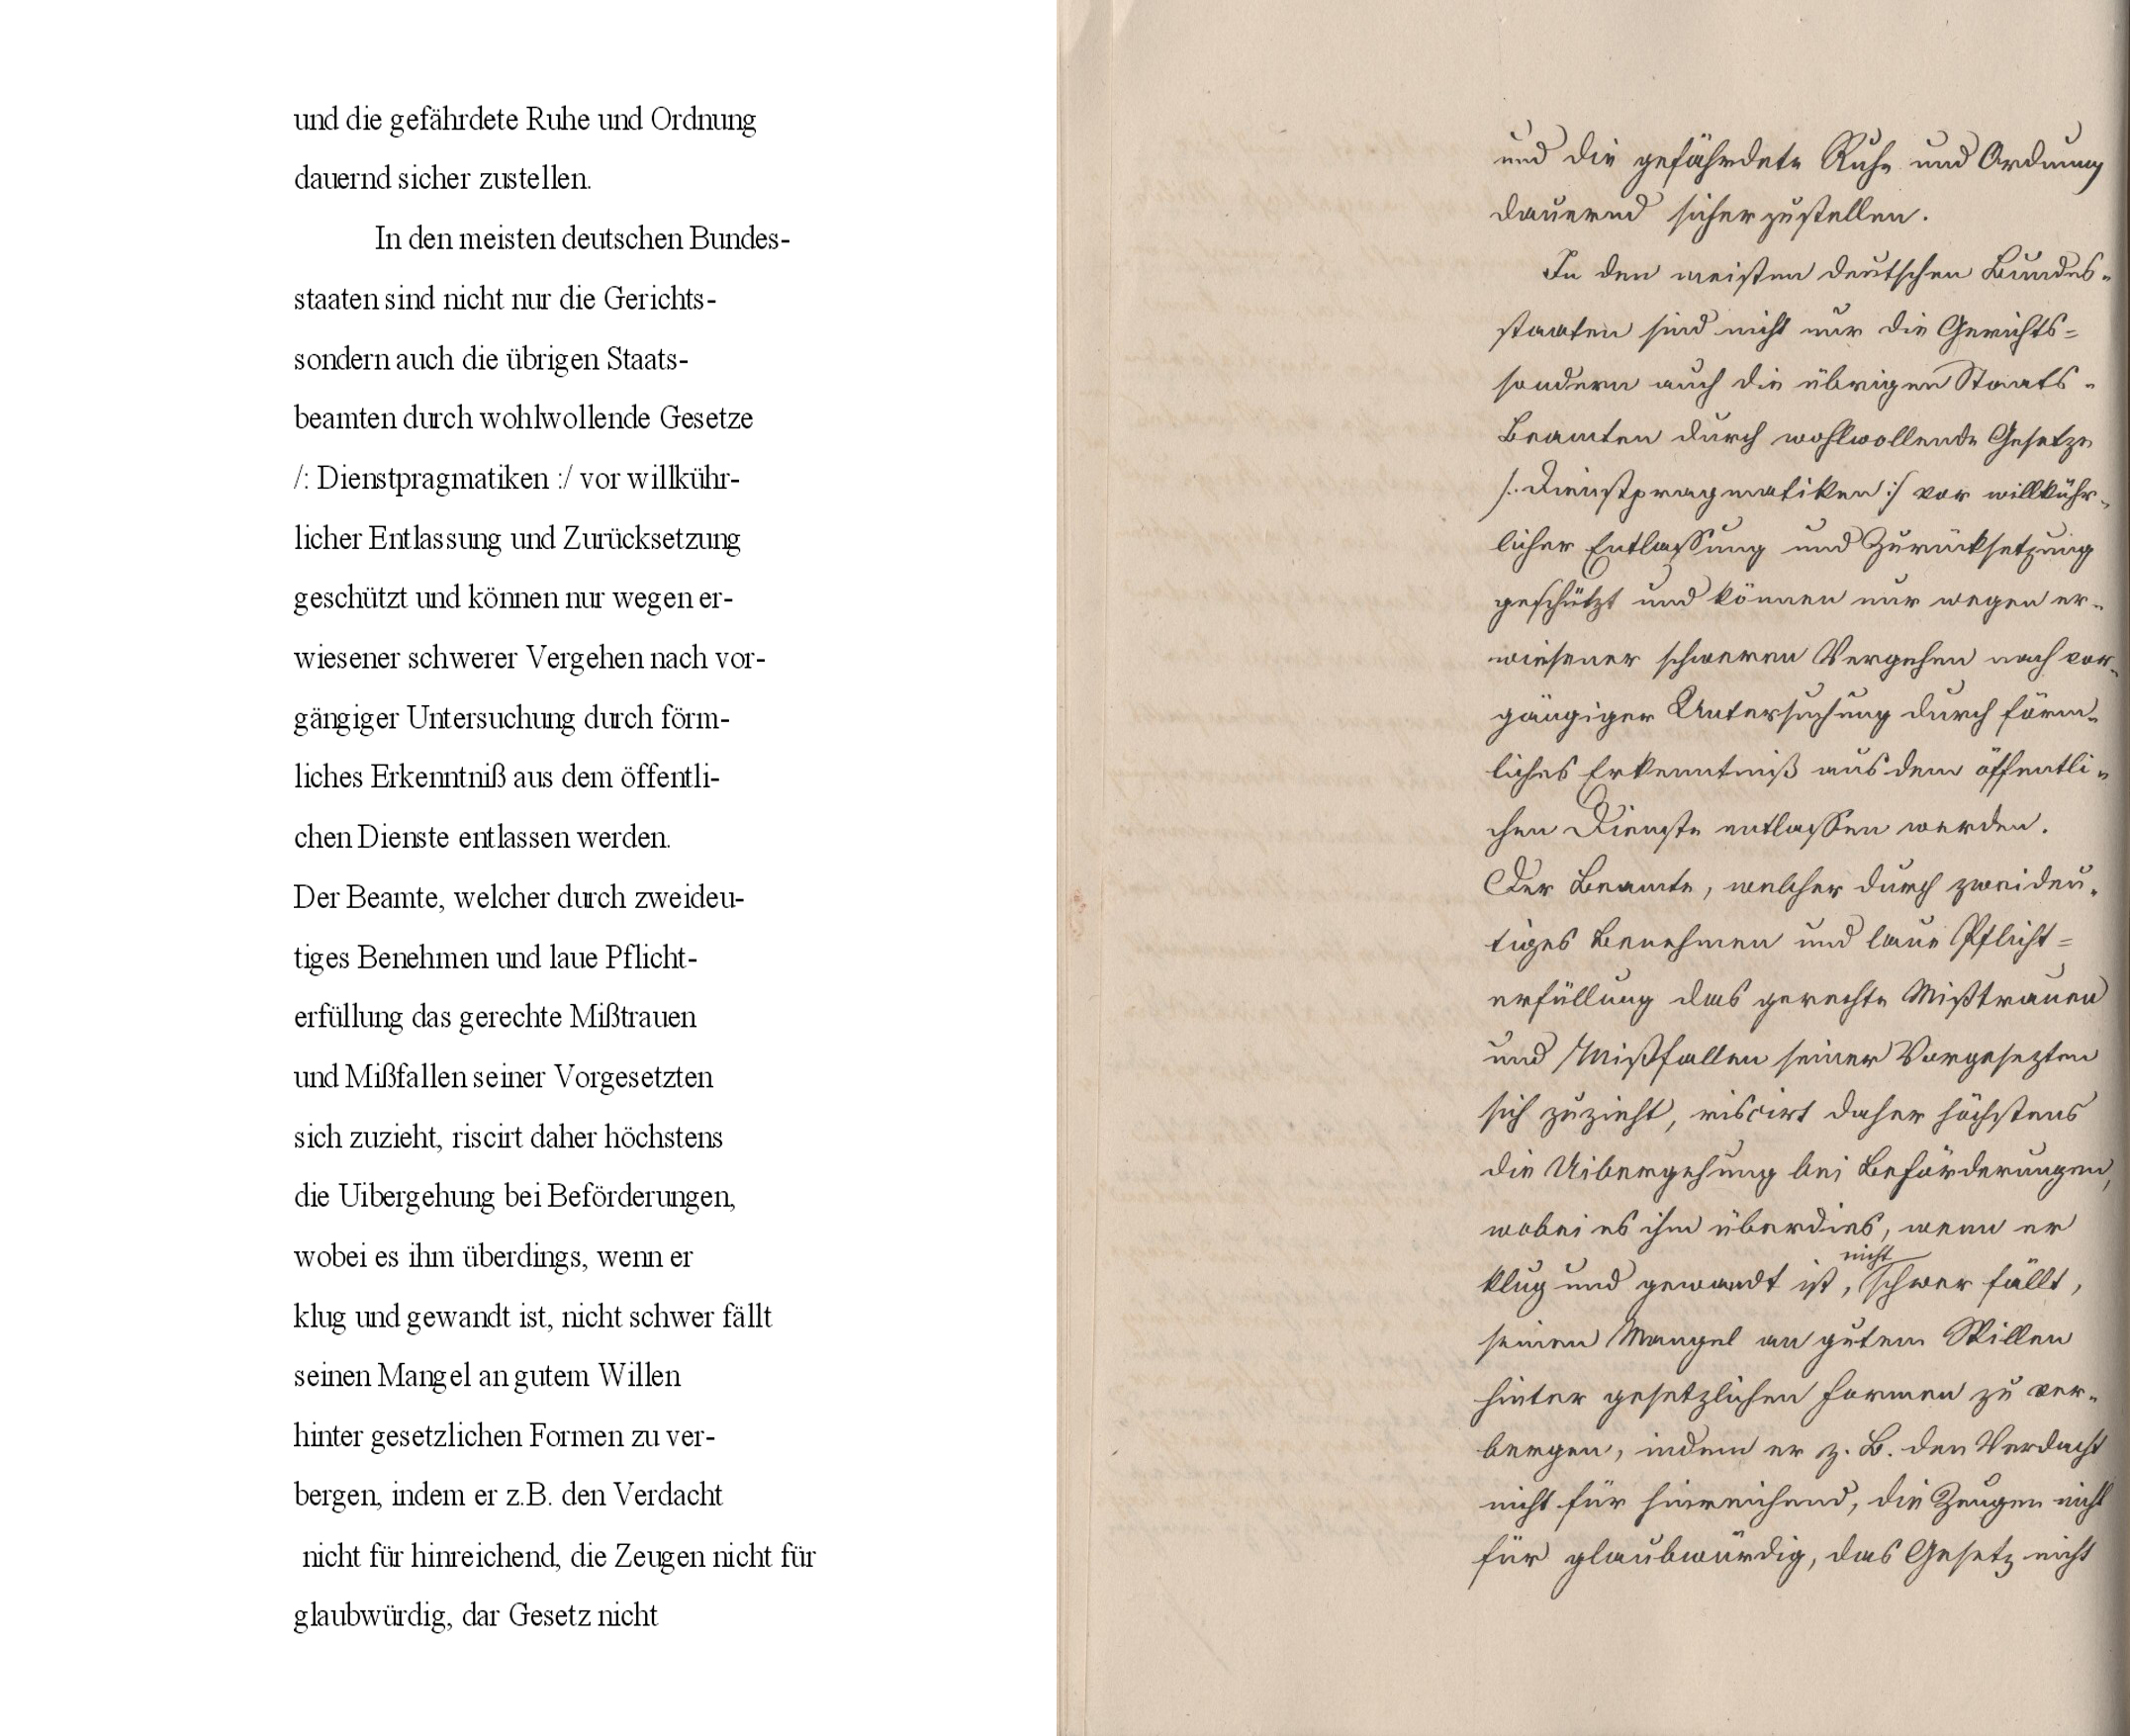 und die gefährdete Ruhe und Ordnung
dauernd sicher zustellen.
In den meisten deutschen Bundes-
staaten sind nicht nur die Gerichts-
sondern auch die übrigen Staats-
beamten durch wohlwollende Gesetze
/: Dienstpragmatiken :/ vor willkühr-
licher Entlassung und Zurücksetzung
geschützt und können nur wegen er-
wiesener schwerer Vergehen nach vor-
gängiger Untersuchung durch förm-
liches Erkenntniß aus dem öffentli-
chen Dienste entlassen werden.
Der Beamte, welcher durch zweideu-
tiges Benehmen und laue Pflicht-
erfüllung das gerechte Mißtrauen
und Mißfallen seiner Vorgesetzten
sich zuzieht, riscirt daher höchstens
die Uibergehung bei Beförderungen,
wobei es ihm überdings, wenn er
klug und gewandt ist, nicht schwer fällt
seinen Mangel an gutem Willen
hinter gesetzlichen Formen zu ver-
bergen, indem er z.B. den Verdacht
nicht für hinreichend, die Zeugen nicht für
glaubwürdig, dar Gesetz nicht
und die gefährdete Ruhe und Ordnung
dauernd sicherzustellen.
In den meisten deutschen Bundes-
staaten sind nicht nur die Gerichts=
sondern auch die übrigen Staats-
Beamten durch wohlwollende Gesetze
/: Dienstpragmatiken :/ vor willkühr-
licher Entlassung und Zurücksetzung
geschützt und können nur wegen er-
wiesener schweren Vergehen nach vor-
gängiger Untersuchung durch förm-
liches Erkenntniß aus dem öffentli-
chen Dienste entlassen werden.
Der Beamte, welcher durch zweideu-
tiges Benehmen und laue Pflicht=
erfüllung das gerechte Mißtrauen
und Mißfallen seiner Vorgesezten
sich zuzieht, riscirt daher höchstens
die Uibergehung bei Beförderungen,
wobei es ihm überdies, wenn er
klug und gewandt ist, nicht schwer fällt,
seinen Mangel an gutem Willen
hinter gesetzlichen Formen zu ver-
bergen, indem er z. B. den Verdacht
nicht für hinreichend, die Zeugen nicht
für glaubwürdig, das Gesetz nicht